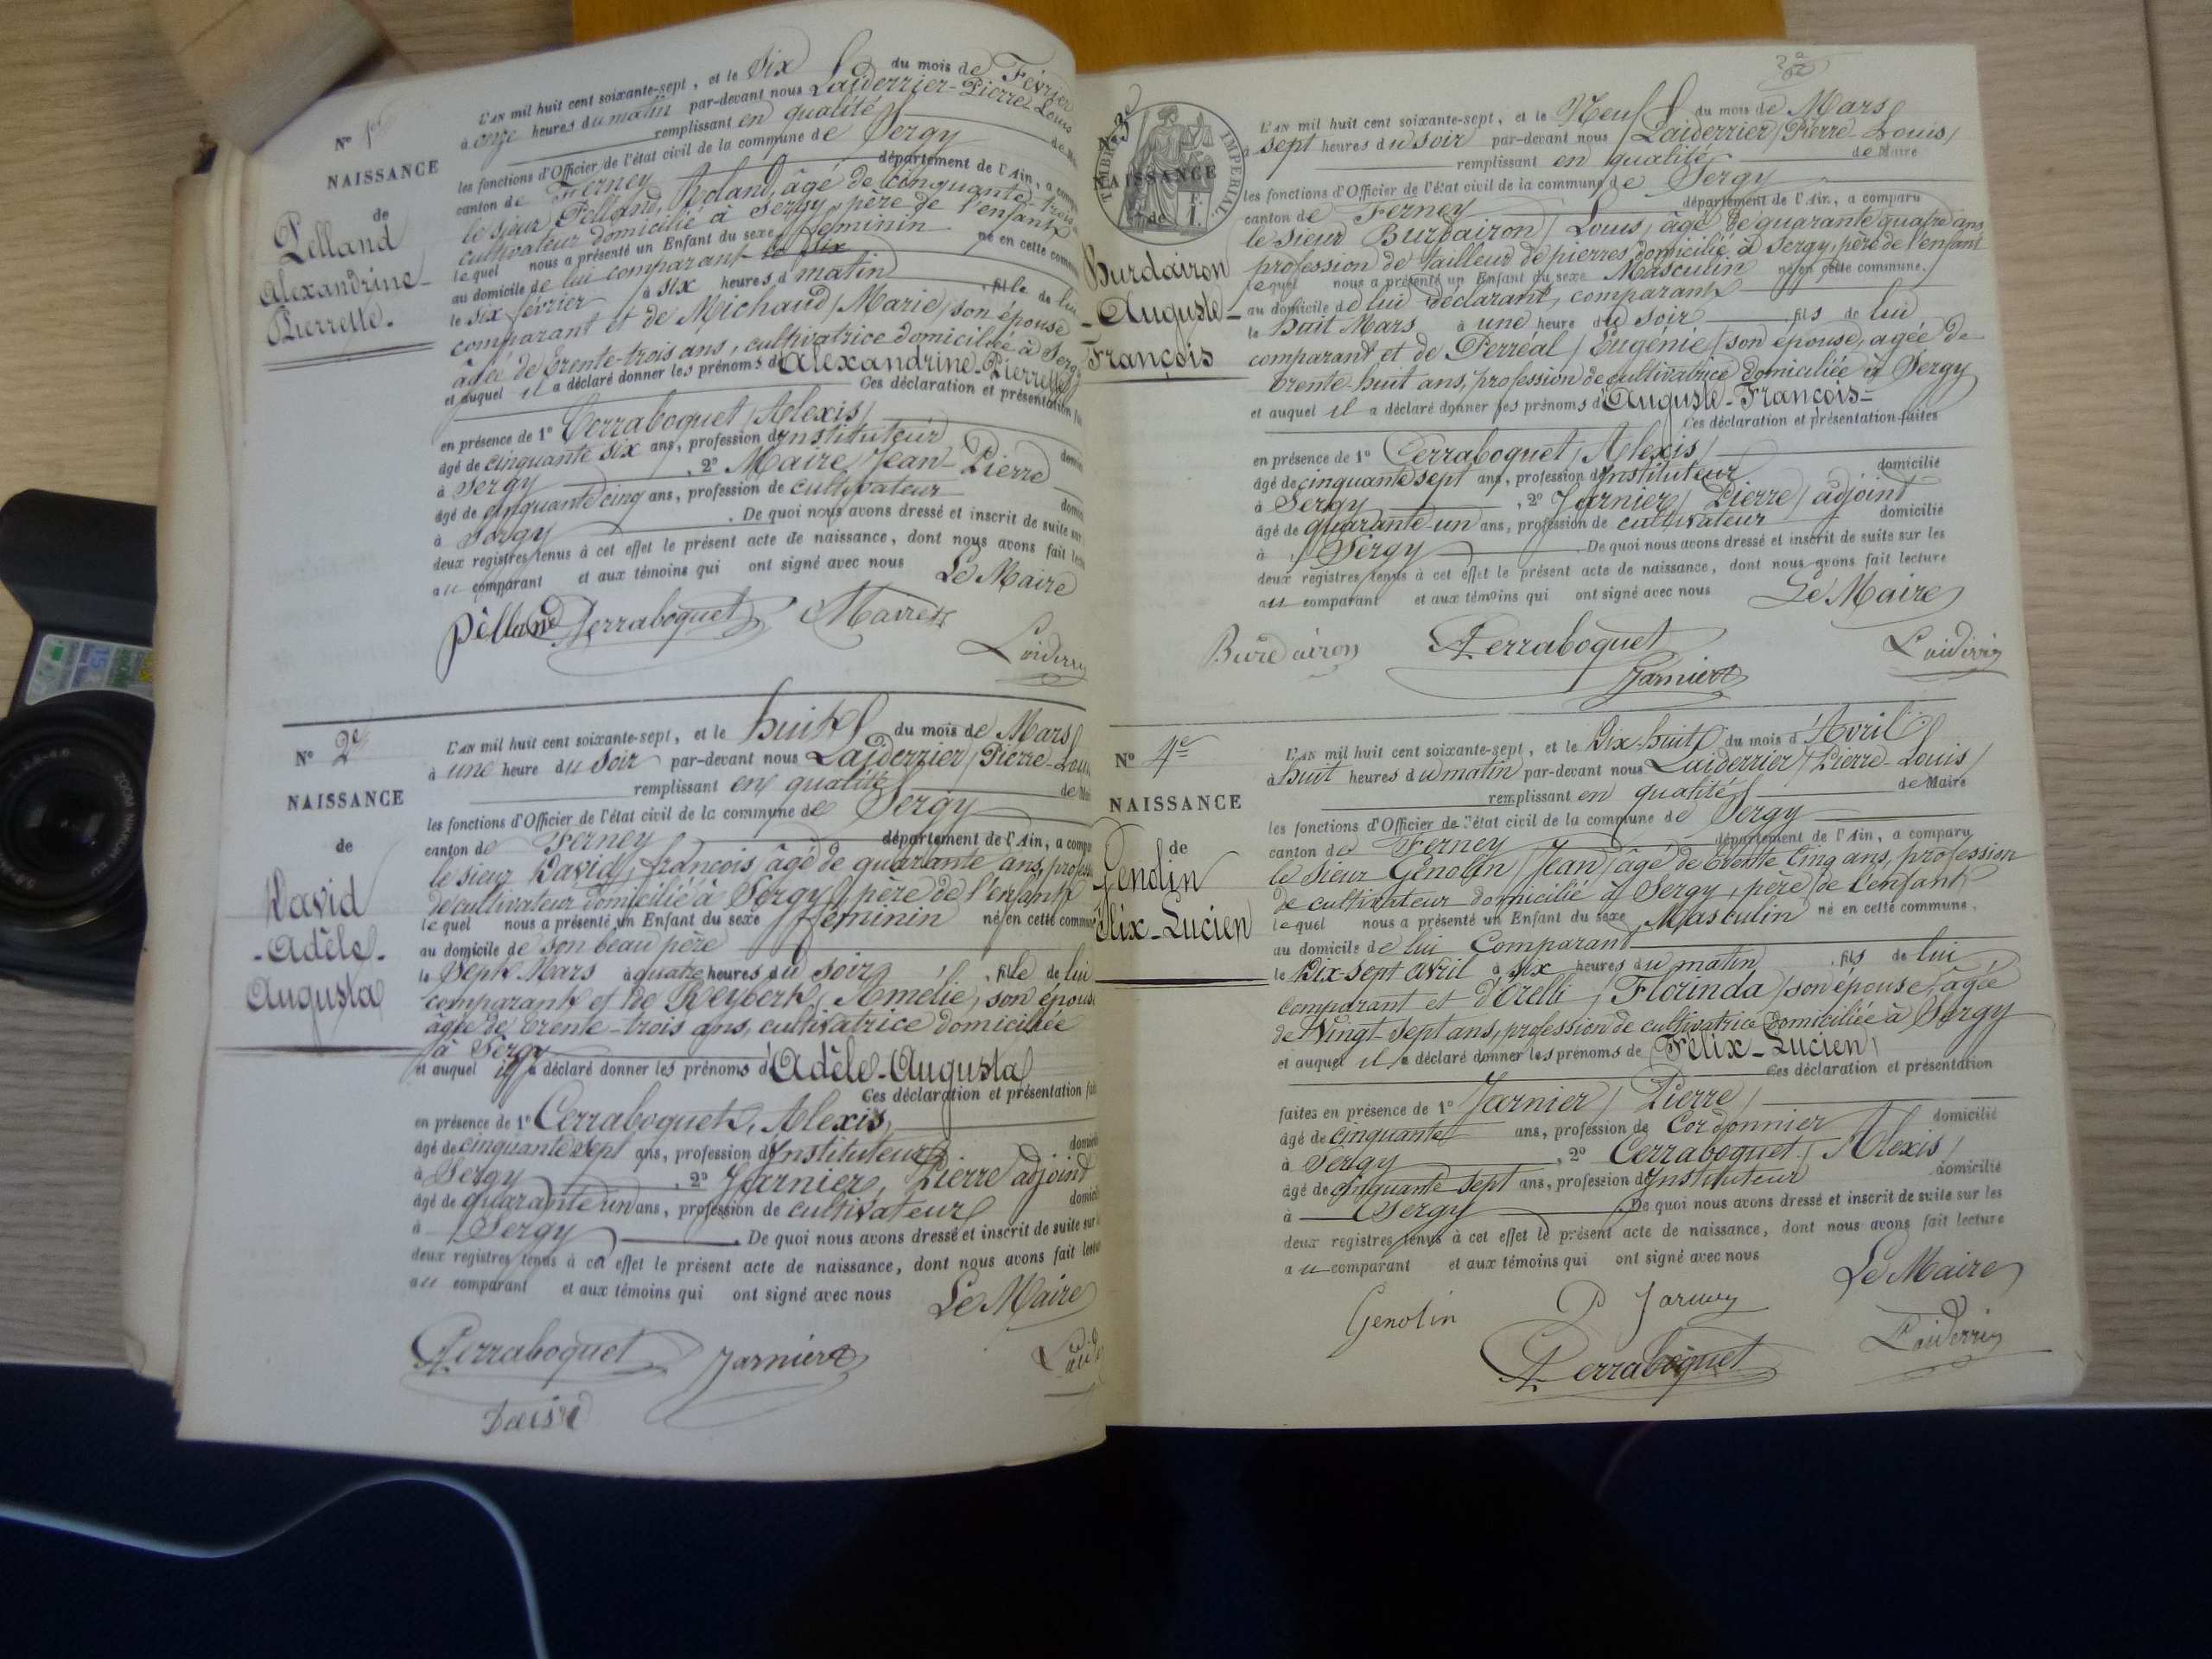 N° 1er
NAISSANCE
de
Pelland
Alexandrine-
Pierrette.
L'AN mil huit cent soixante-sept, et le Six du mois de Février
à onze heures du matin par-devant nous Laiderrier-Pierre-Louis
remplissant en qualité de
les fonctions d'Officier de l'état civil de la commune de Sergy
canton de Ferney département de l'Ain, a
le sieur Pelland, Roland, âgé de cinquante-trois
cultivateur domicilié à Sergy, père de l'enfant
lequel nous a présenté un Enfant du sexe féminin né en cette
au domicile de lui comparant le six
le six février à six heures d matin fille de lui
comparant et de Michaud / Marie / son épouse
âgée de trente-trois ans, cultivatrice domiciliée à
et auquel il a déclaré donner les prénoms d'Alexandrine-Pierrette
Ces déclaration et présentation
en présence de 1° Terraboquet / Alexis /
âgé de cinquante six ans, profession d'Instituteur
à Sergy , 2° Maire Jean-Pierre
âgé de cinquante cinq ans, profession de cultivateur
à Sergy . De quoi nous avons dressé et inscrit de suite sur
deux registres tenus à cet effet le présent acte de naissance, dont nous avons fait
au comparant et aux témoins qui ont signé avec nous Le Maire
pelland Terraboquet Maire
N° 2e
NAISSANCE
de
David
-Adèle-
Augusta
L'AN mil huit cent soixante-sept, et le huit du mois de Mars
à une heure du soir par-devant nous Laiderrier / Pierre-
remplissant en qualité de
les fonctions d'Officier de l'état civil de la commune de Sergy
canton de Ferney département de l'Ain, a
le sieur David, françois âgé de quarante ans,
de cultivateur domicilié à Sergy, père de l'enfant
lequel nous a présenté un Enfant du sexe féminin né en cette
au domicile de son beau père
le Sept Mars à quatre heures du soir , fille de lui
comparant et de Reybert, Amélie, son
âgée de trente-trois ans, cultivatrice domiciliée
à Sergy
et auquel il a déclaré donner les prénoms d'Adèle-Augusta
Ces déclaration et présentation
en présence de 1° Terraboquet, Alexis,
âgé de cinquante sept ans, profession d'Instituteur
à Sergy , 2° Jarnier, Pierre adjoint
âgé de quarante un ans, profession de cultivateur
à Sergy . De quoi nous avons dressé et inscrit de suite sur
deux registres tenus à cet effet le présent acte de naissance, dont nous avons fait
au comparant et aux témoins qui ont signé avec nous Le Maire
Terraboquet Jarnier
N° 3e
TIMBRE IMPERIAL
NAISSANCE
de
Burdairon
-Auguste-
François
L'AN mil huit cent soixante-sept, et le Neuf du mois de Mars
à sept heures du soir par-devant nous / Laiderrier / Pierre-Louis /
remplissant en qualité de Maire
les fonctions d'Officier de l'état civil de la commune de Sergy
canton de Ferney département de l'Ain, a comparu
le sieur Burdairon / Louis / âgé de quarante quatre ans,
profession de tailleur de pierres domicilié à Sergy, père de l'enfant
lequel nous a présenté un Enfant du sexe Masculin né en cette commune.
au domicile de lui déclarant, comparant
le huit Mars à une heure du soir fils de lui
comparant et de Perréal / Eugénie / son épouse, agée de
trente-huit ans, profession de cultivatrice domiciliée à Sergy
et auquel il a déclaré donner les prénoms d'Auguste-François-
Ces déclaration et présentation faites
en présence de 1° Terraboquet / Alexis /
domicilié
âgé de cinquante sept ans, profession d'Instituteur
à Sergy , 2° Jarnier / Pierre / adjoint
domicilié
âgé de quarante-un ans, profession de cultivateur
à Sergy . De quoi nous avons dressé et inscrit de suite sur les
deux registres tenus à cet effet le présent acte de naissance, dont nous avons fait lecture
au comparant et aux témoins qui ont signé avec nous Le Maire
Burdairon ATerraboquet
Jarnier
N° 4e
NAISSANCE
de
Genolin
Félix-Lucien
L'AN mil huit cent soixante-sept, et le Dix-huit du mois d'Avril
à huit heures du matin par-devant nous Laiderrier / Pierre-Louis /
remplissant en qualité de Maire
les fonctions d'Officier de l'état civil de la commune de Sergy
canton de Ferney département de l'Ain, a comparu
le Sieur Genolin / Jean / âgé de trente Cinq ans, profession
de cultivateur domicilié à Sergy, père de l'enfant
lequel nous a présenté un Enfant du sexe Masculin né en cette commune.
au domicile de lui Comparant
le Dix-sept avril à six heures du matin . fils de lui
comparant et d'Orelli / Florinda / son épouse, âgée
de Vingt-sept ans, profession de cultivatrice domiciliée à Sergy
et auquel il a déclaré donner les prénoms de Félix-Lucien
Ces déclaration et présentation
faites en présence de 1° Jarnier / Pierre /
domicilié
âgé de cinquante ans, profession de Cordonnier
à Sergy , 2° Terraboquet / Alexis /
domicilié
âgé de cinquante sept ans, profession d'Instituteur
à Sergy . De quoi nous avons dressé et inscrit de suite sur les
deux registres tenus à cet effet le présent acte de naissance, dont nous avons fait lecture
au comparant et aux témoins qui ont signé avec nous Le Maire
Genolin
ATerraboquet